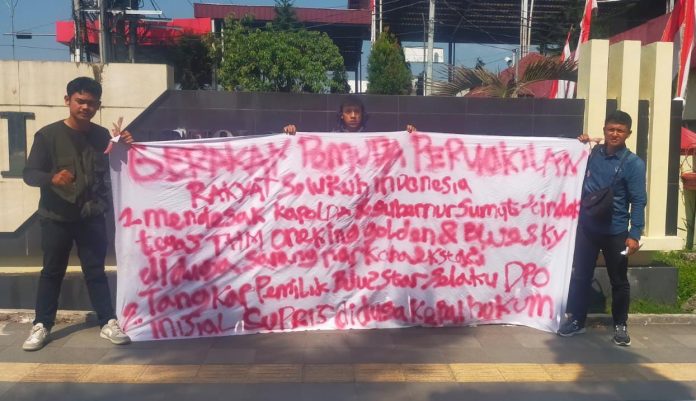 GERAKAN PEMUDA PERWAKILAN
RAKYAT Seluruh indonesia
1. mendesak kapolda & Gubernur Sumut tindak
tegas THM oneking Golden & Bluesky
diduga sarang narkoba ekstasi
2. Tangkap Pemilik Blue Star Selaku DPO
inisial Supris diduga kebal hukum